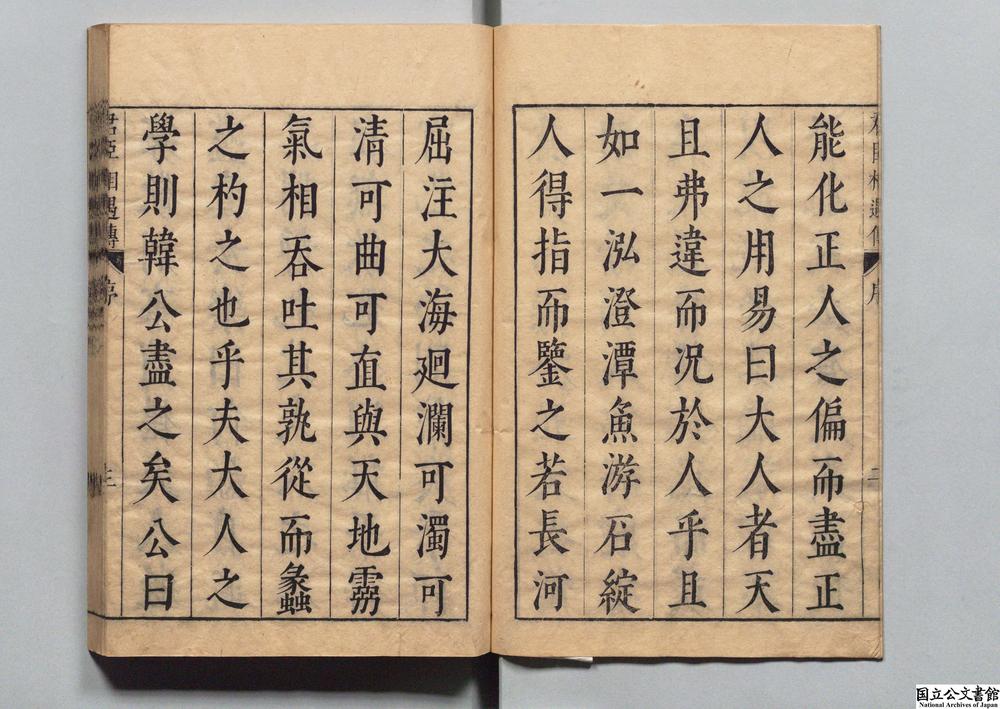 能化正人之偏而盡正
人之用易曰大人者天
且弗違而况於人乎且
如一泓澄潭魚游石綻
人得指而鑒之若長河
屈注大海廻瀾可濁可
清可曲可直與天地
氣相吞吐其孰從而蠡
之杓之也乎夫大人之
學則韓公盡之矣公曰
君臣相遇傳
序
三
国立公文書館
National Archives of Japan